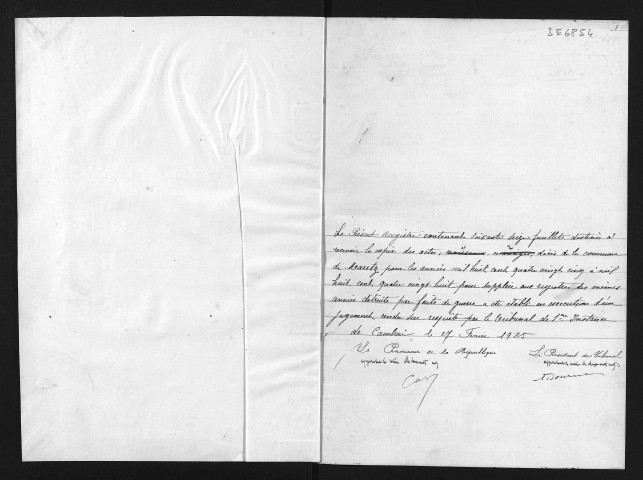 3E6854
1
Le Présent Registre contenant soixante seize feuillets destinés à
recevoir la copie des actes, naissances mariages, décès de la commune
de Maretz pour les années mil huit cent quatre vingt cinq à mil
huit cent quatre vingt huit pour suppléer aux registres des mêmes
années détruits par faits de guerre a été établi en exécution d'un
jugement rendu sur requête par le Tribunal de 1ère Instance
de Cambrai le 27 Février 1925
Le Procureur de la République
Le Président du Tribunal